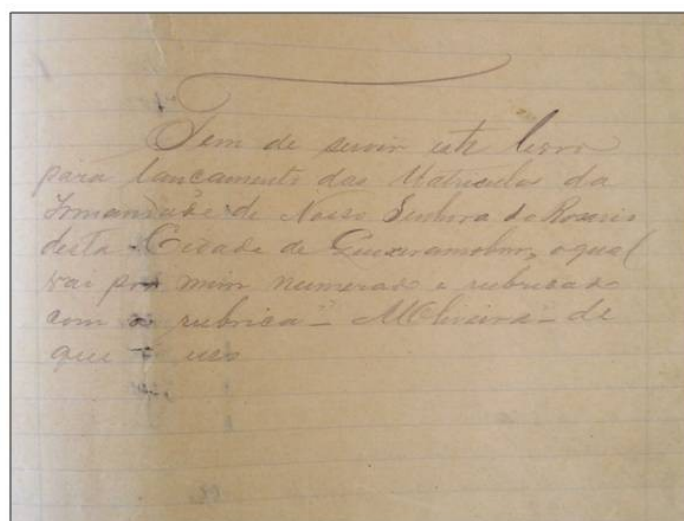 Tem de servir este livro
para lancamento das Matriculas da
Irmandade de Nossa Senhora do Rosario
desta Cidade de Quixeramobim, o qual
vai por mim numerado e rubricado
com a rubrica - MOliveira - de
que uso